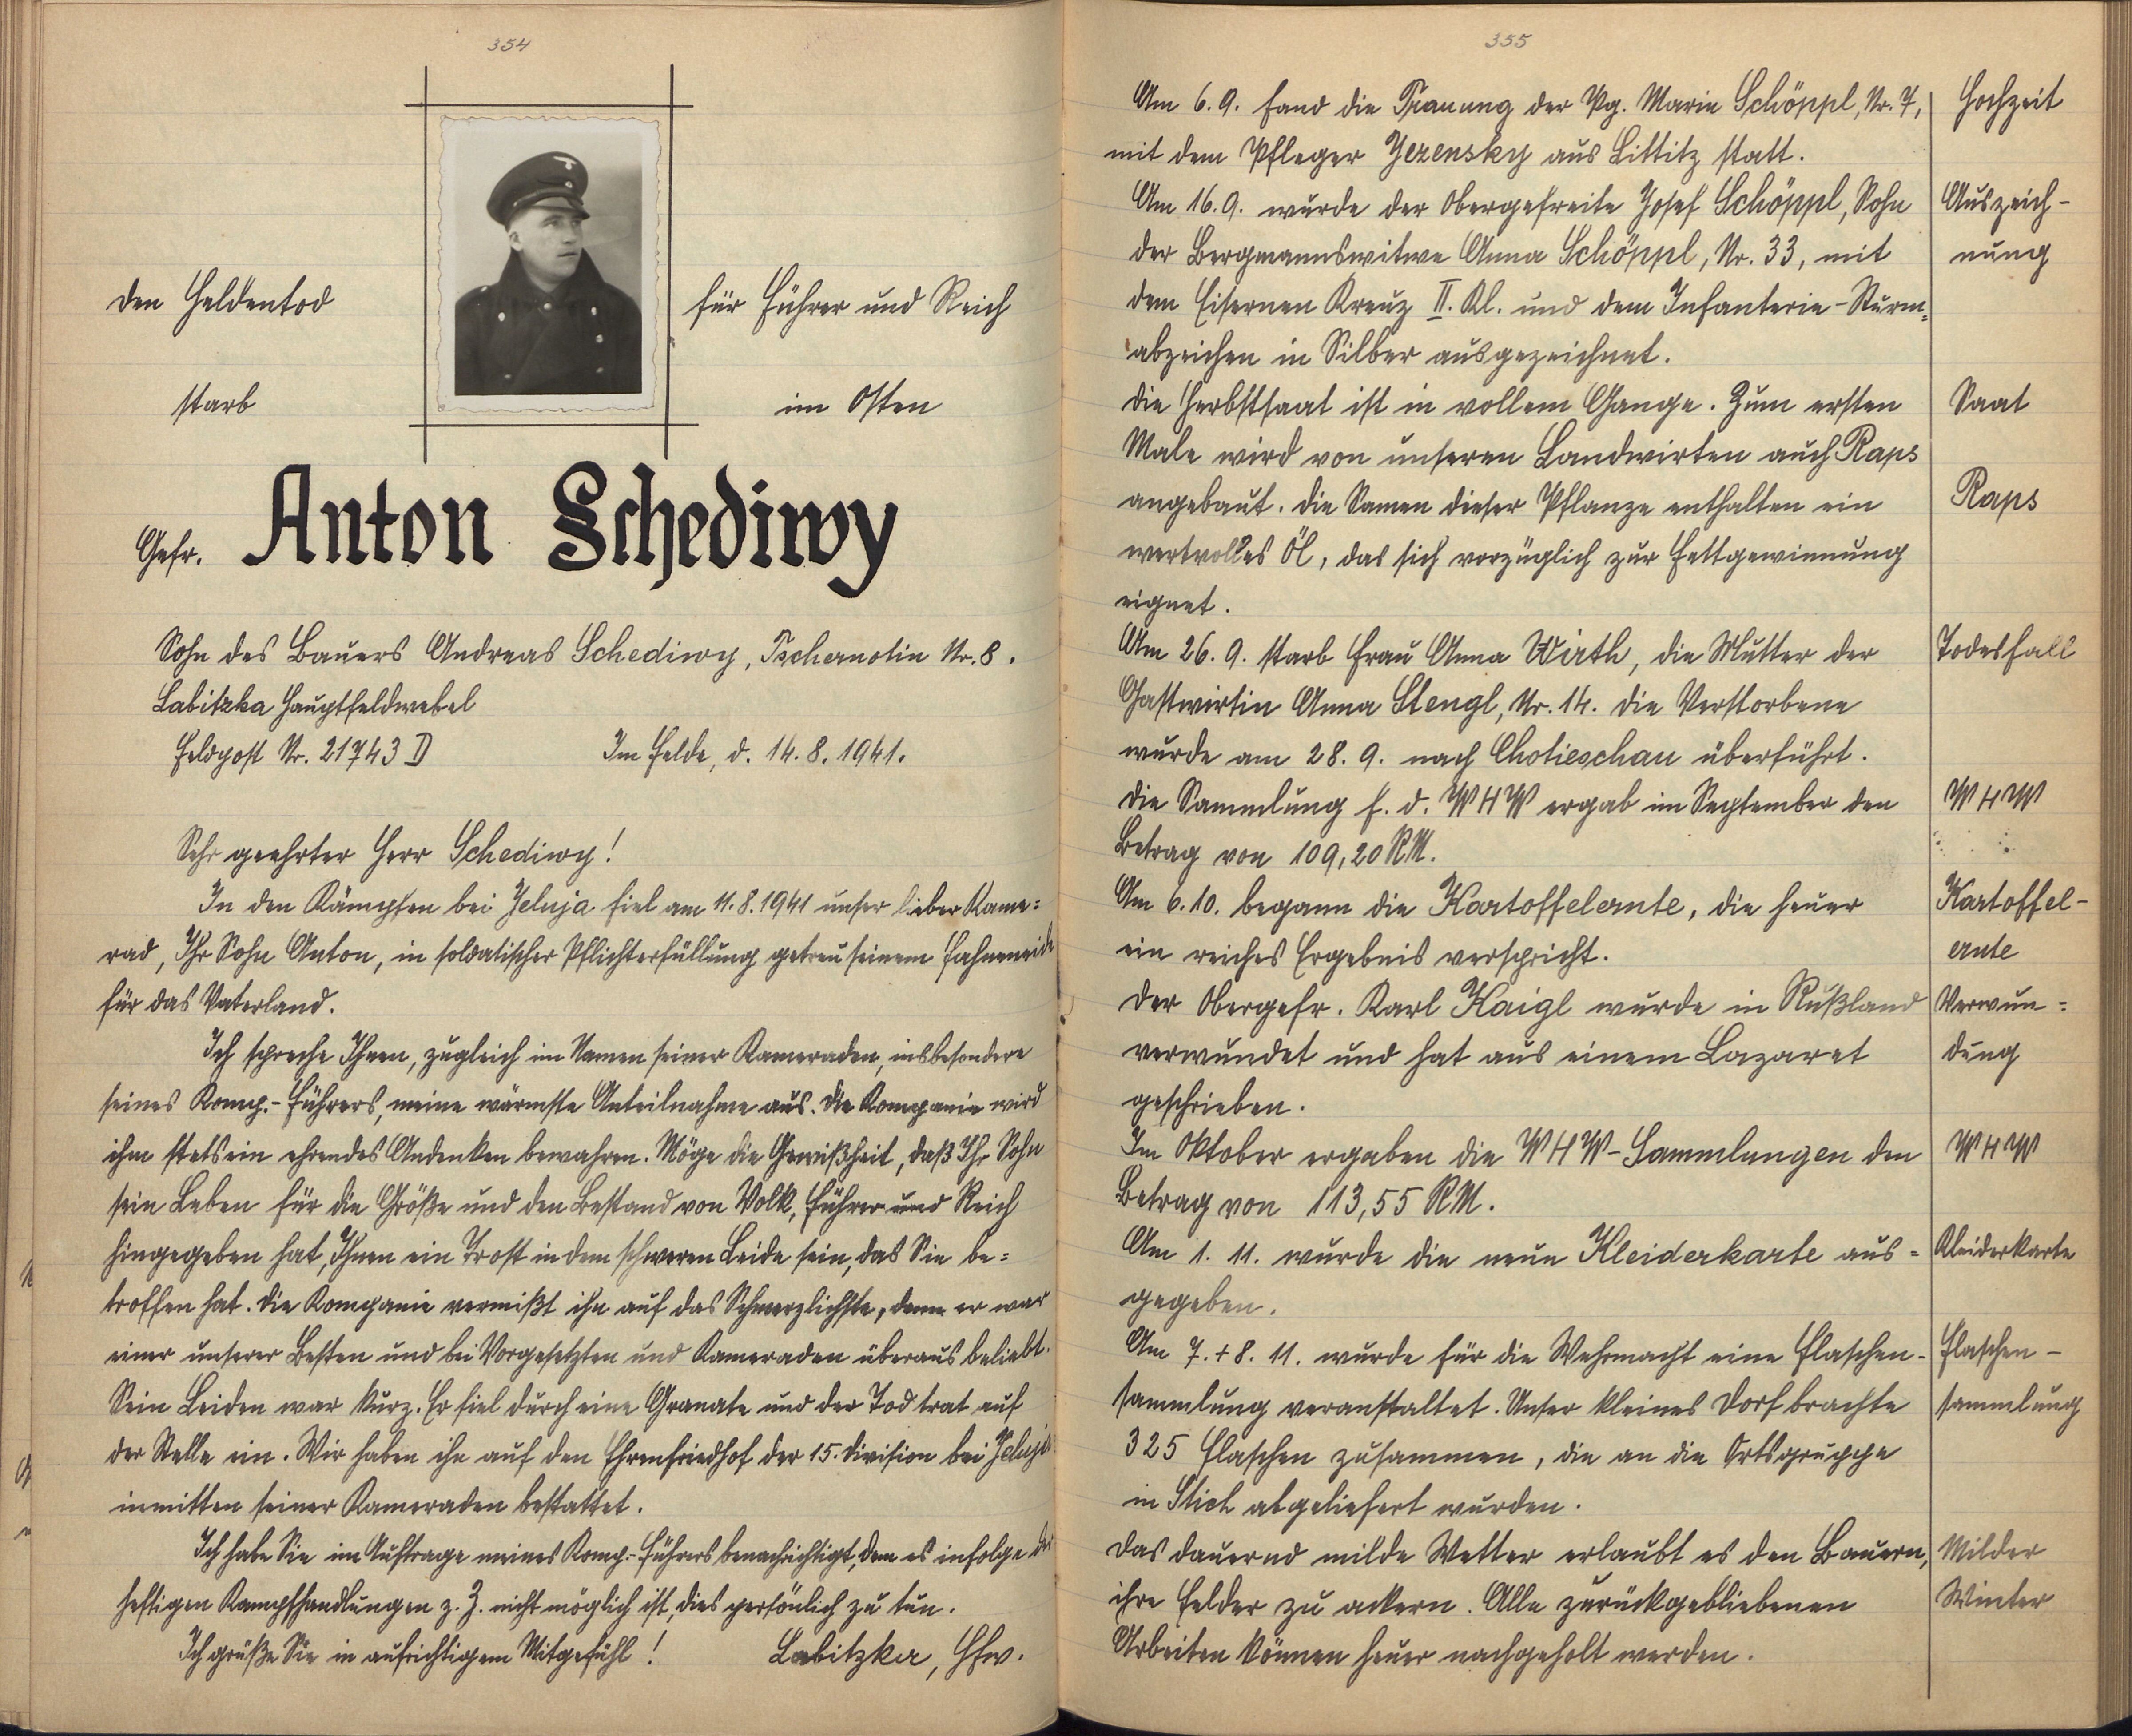 354
den Heldentod
für Führer und Reich
starb
im Osten
Gefr. Anton Schediwy
Sohn des Bauers Andreas Schediwy, Tschernotin Nr. 8.
Labitzka Hauptfeldwebel
Feldpost Nr. 21743 D Im Felde, d. 14. 8. 1941.
Sehr geehrter Herr Schediwy!
In den Kämpfen bei Jelnja fiel am 11. 8. 1941 unser lieber Kame=
rad, Ihr Sohn Anton, in soldatischer Pflichterfüllung getreu seinem Fahneneide
für das Vaterland.
Ich spreche Ihnen, zugleich im Namen seiner Kameraden, insbesondere
seines Komp.-Führers, meine wärmste Anteilnahme aus. Die Kompanie wird
ihm stets ein ehrendes Andenken bewahren. Möge die Gewißheit, daß Ihr Sohn
sein Leben für die Größe und den Bestand von Volk, Führer und Reich
hingegeben hat, Ihnen ein Trost in dem schweren Leide sein, das Sie be=
troffen hat. Die Kompanie vermißt ihn auf das Schmerzlichste, denn er war
einer unserer Besten und bei Vorgesetzten und Kameraden überaus beliebt.
Sein Leiden war kurz. Er fiel durch eine Granate und der Tod trat auf
der Stelle ein. Wir haben ihn auf den Ehrenfriedhof der 15. Division bei Jelnja
inmitten seiner Kameraden bestattet.
Ich habe Sie im Auftrage meines Komp.-Führers benachrichtigt, dem es infolge der
heftigen Kampfhandlungen z. Z. nicht möglich ist, dies persönlich zu tun.
Ich grüße Sie in aufrichtigem Mitgefühl! Labitzka, Hfw.
355
Am 6. 9. fand die Trauung der Pg. Marie Schöppl, Nr. 7, Hochzeit
mit dem Pfleger Jezensky aus Littitz statt.
Am 16. 9. wurde der Obergefreite Josef Schöppl, Sohn Auszeich-
der Bergmannswitwe Anna Schöppl, Nr. 33, mit nung
dem Eisernen Kreuz II. Kl. und dem Infanterie-Sturm=
abzeichen in Silber ausgezeichnet.
Die Herbstsaat ist in vollem Gange. Zum ersten Saat
Male wird von unseren Landwirten auch Raps
angebaut. Die Samen dieser Pflanze enthalten ein Raps
wertvolles Öl, das sich vorzüglich zur Fettgewinnung
eignet.
Am 26. 9. starb Frau Anna Wirth, die Mutter der Todesfall
Gastwirtin Anna Stengl, Nr. 14. Die Verstorbene
wurde am 28. 9. nach Chotieschau überführt.
Die Sammlung f. d. WHW ergab im September den WHW
Betrag von 109,20 RM.
Am 6. 10. begann die Kartoffelernte, die heuer Kartoffel-
ein reiches Ergebnis verspricht. ernte
Der Obergefr. Karl Kaigl wurde in Rußland Verwun=
verwundet und hat aus einem Lazaret dung
geschrieben.
Im Oktober ergaben die WHW-Sammlungen den WHW
Betrag von 113,55 RM.
Am 1. 11. wurde die neue Kleiderkarte aus= Kleiderkarte
gegeben.
Am 7. + 8. 11. wurde für die Wehrmacht eine Flaschen- Flaschen-
sammlung veranstaltet. Unser kleines Dorf brachte sammlung
325 Flaschen zusammen, die an die Ortsgruppe
in Stich abgeliefert wurden.
Das dauernd milde Wetter erlaubt es den Bauern, Milder
ihre Felder zu ackern. Alle zurückgebliebenen Winter
Arbeiten können heuer nachgeholt werden.